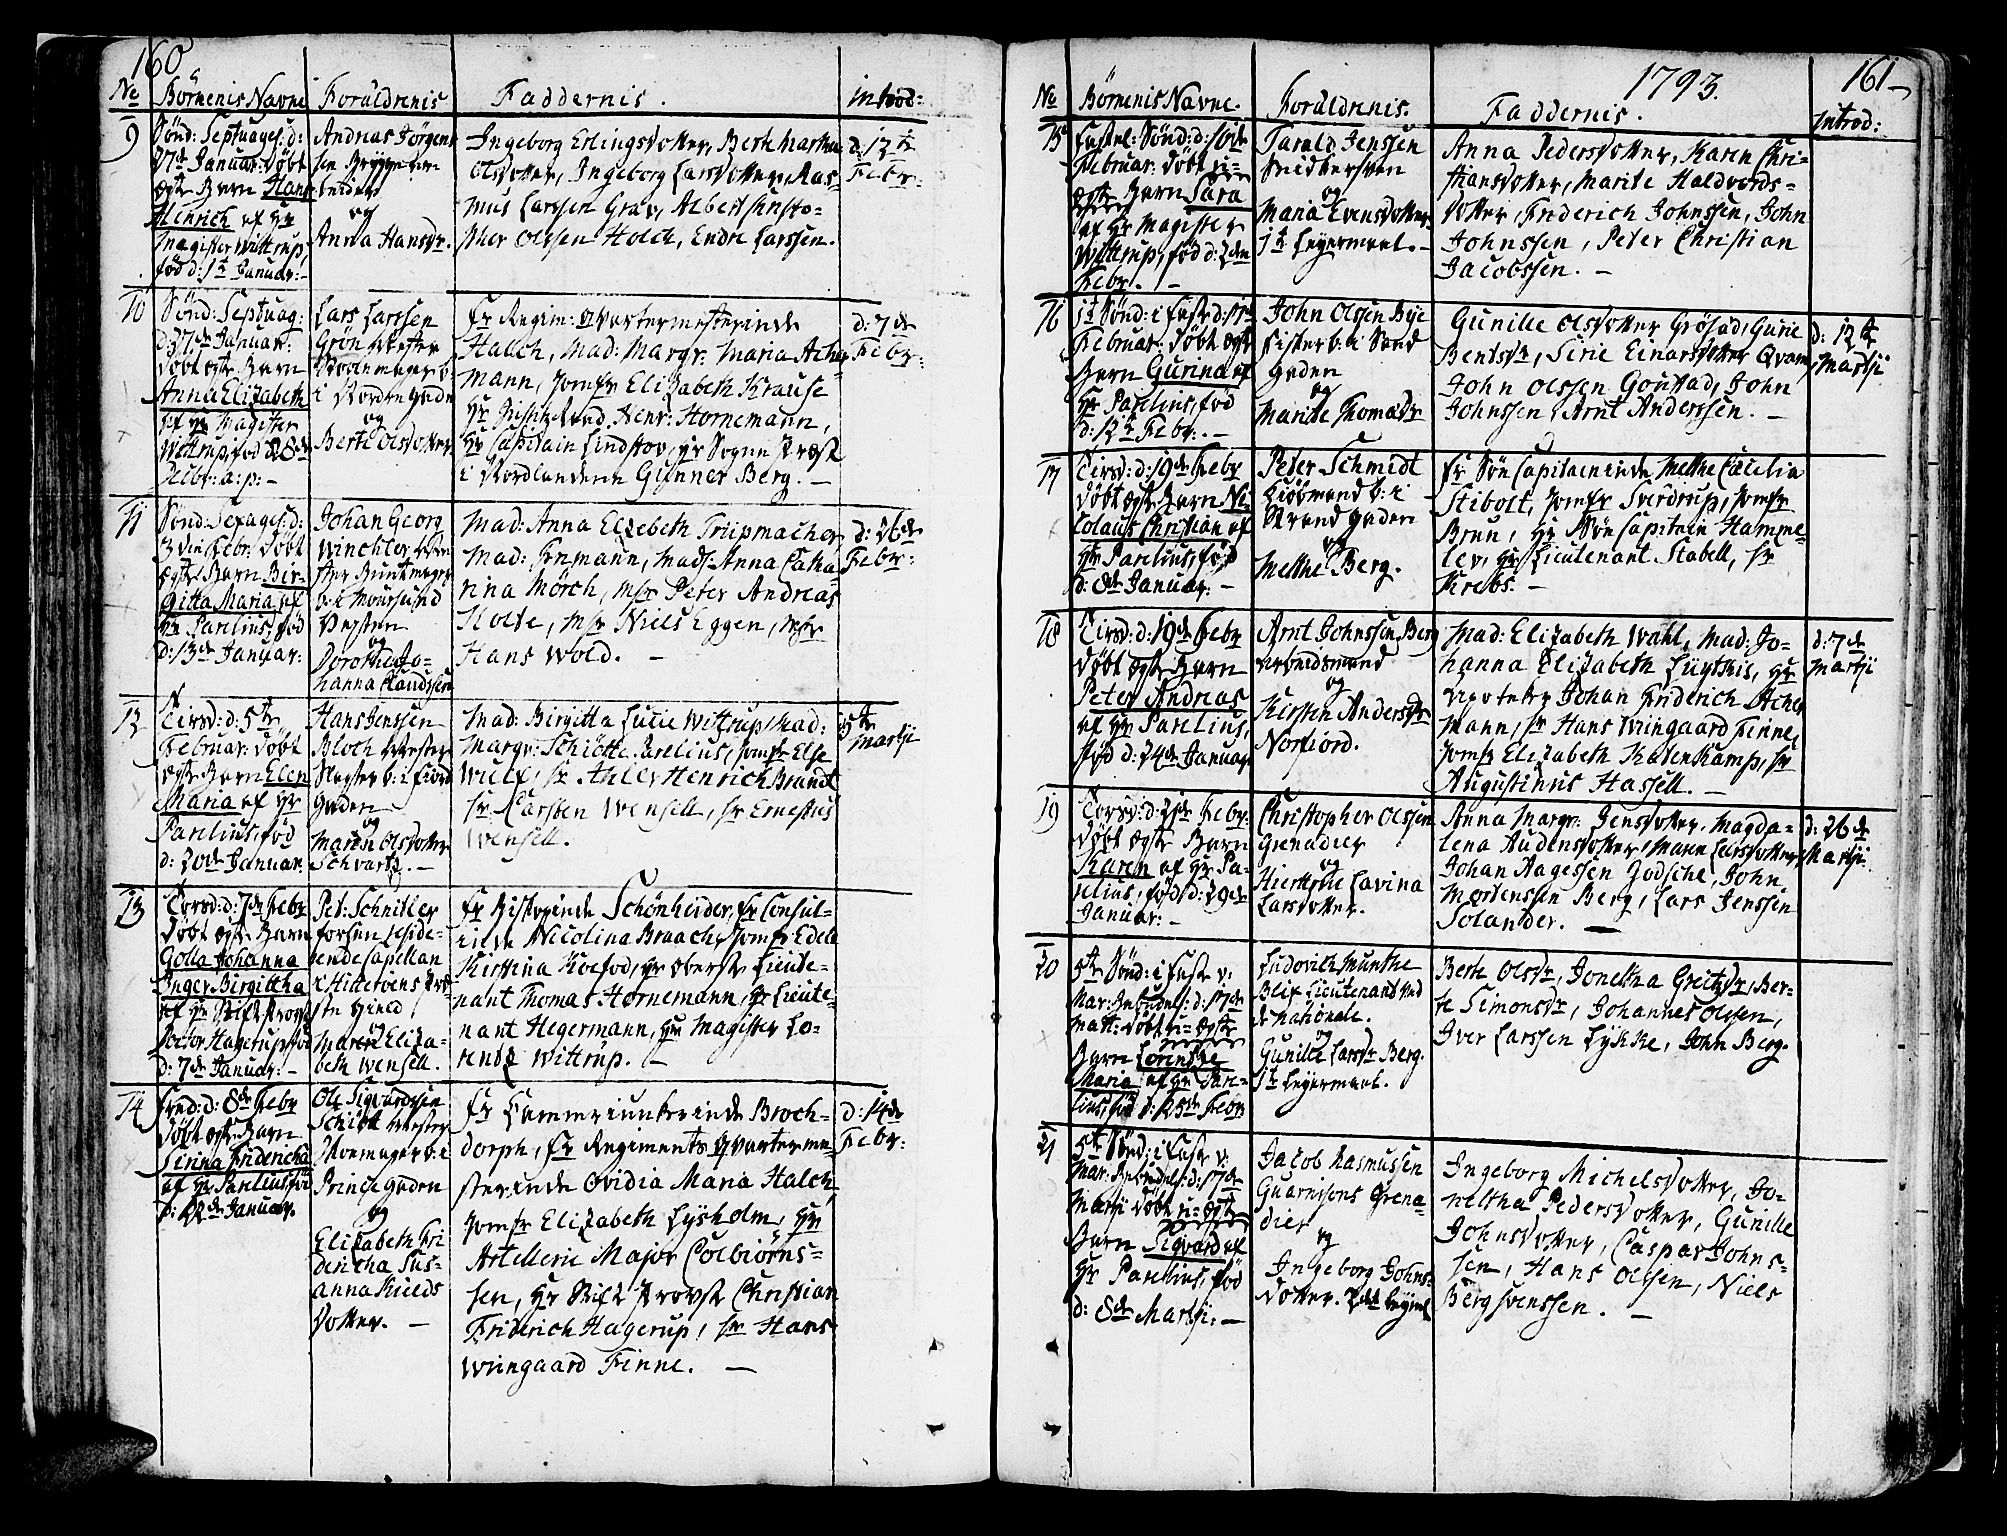 160
No
Börnenis Navne
Foruldrenis
Faddernis.
introd:
9
Sönd: Septuages: d:
27de Januar: Döbt
ægte Barn Hans
Henrich af Hr
Magister Wittrup,
föd d: 1te Januar:
Andreas Jörgen-
sen Bryggear-
beider
og
Anna Hansdr.
Ingeborg Erlingsdotter, Berth Martha
Olsdotter, Ingeborg Larsdotter, Ras-
mus Larssen Grav, Albert Christo-
pher Olssen Holck, Endre Larssen.
d: 12te
Febr:
10
Sönd: Septuag:
d: 27de Januar:
Döbt ægte Barn
Anna Elizabeth
af Hr Magister
Wittrup, föd d: 28de
Decbr: a: p: -
Lars Larssen
Grön Mester
Skoemager b:
i Nordre Gaden
og
Berte Olsdotter
Fr Regim: Qvartermesterinde
Halch, Mad: Margr: Maria Acher-
mann, Jomfr Elizabeth Krause
Hr Justitzraad Henr: Hornemann,
Hr Capitain Lindstov, Hr Sogne Præst
i Nordlandene Gunner Berg. -
d: 7de
Febr:
11
Sönd: Sexages: d:
3die Febr: Döbt
ægte Barn Bir-
gitta Maria af
Hr Parelius, föd
d: 13de Januar:
Johan Georg
Winckler Me-
ster Buntmager
b: i Mournsund
Vesten
og
Dorothea Jo-
hanna Claudssen
Mad: Anna Elzebeth Triipmacher
Mad: Enmann, Mads: Anna Catha
rina Mörch, Msr Peter Andreas
Holte, Msr Niels Eggen, Msr
Hans Wold. -
d: 26de
Febr:
12
Tirsd: d: 5te
Februar: Döbt
ægte Barn Elen
Maria af Hr
Parelius, föd
d: 20de Januar.
Hans Jenssen
Bloch Mester
Slagter b: i Fiord
Gaden
og
Maren Olsdotter
Schvartz. -
Mad: Birgitta Lucie Wittrup, Mad:
Margr: Schiötte Parelius, Jomfr Else
Wulf, Sr Ahler Henrich Brandt
Sr Carsten Wensell, Sr Ernestus
Wensell.
5te
Martji
13
Torsd: d: 7de Febr
Döbt ægte Barn
Golla Johanna
Inger Birgittha
af Hr Stift Provst
Doctor Hagerup, föd
d: 7de Januar: -
Pet: Schnitler
forsen reside-
rende Capellan
i Hitterens Præ-
ste Gield
og
Maren Eliza-
beth Wensell.
Fr Biskopinde Schönheider, Fr Consul-
inde Nicolina Braach, Jomfr Edele
Kirstina Koefod, Hr Oberst Lieute-
nant Thomas Hornemann, Hr Lieute-
nant Hegermann, Hr Magister Lo-
rentz Wittrup. -
14
Fred: d: 8de Febr
Döbt ægte Barn
Sirina Fridericha
af Hr Parelius, föd
d: 22de Januar.
Ole Sigvardssen
Schiött Mester
Skoemager b: i
Prinse Gaden
og
Elizabeth Fri
dericha Sus-
anna Kields
dotter. -
Fr Cammerjunkerinde Broch-
dorph, Fr Regiments Qvarterme
sterinde Ovidia Maria Halch
Jomfr Elizabeth Lysholm, Hr
Artellerie Major Colbiörns-
sen, Hr Stift Provst Christian
Friderich Hagerup, Sr Hans
Wiingaard Finne. -
d: 14de
Febr:
1793.
161
No
Börnenis Navne.
Foruldrenis.
Faddernis.
introd:
15
Fastel: Sönd: d: 10de
Februar: Döbt u-
ægte Barn Sara
af Hr Magister
Wittrup, föd d: 2den
Febr. -
Tarald Jenssen
Snidkersven
og
Maria Evensdotter
1te Leyermaal. -
Anna Pedersdotter, Karen Chri-
stiansdotter, Marite Haldvords-
dotter, Friderich Johnssen, John
Johnssen, Peter Christian
Jacobssen. -
16
1te Sönd: i Fast: d: 17de
Februar: Döbt ægte
Barn Gurina af
Hr Parelius, föd
d: 12te Febr: -
John Olssen Bye
Fisker b: i Sand
Gaden
og
Marite Thomasdr
Gunille Olsdotter Grösad, Gurie
Bentsdr, Sirie Einarsdotter Qvam,
John Olssen Goustad, John
Johnssen, Arnt Anderssen. -
d: 12te
Martji
17
Tirsd: d: 19de Febr
Döbt ægte Barn Ni-
colaus Christian af
Hr Parelius, föd
d: 8de Januar. -
Peter Schmidt
Kiöbmand b: i
Strand Gaden
og
Metthe Berg.
Fr Sön Capitaininde Metthe Cæcilia
Stibolt, Jomfr Sverdrup, Jomfr
Brun, Hr Sön Capitain Hamme-
lev, Hr Lieutenant Stabell, Sr
Krebs. -
18
Tirsd: d: 19de Febr
Döbt ægte Barn
Peter Andreas
af Hr Parelius,
föd d: 24de Januar
Arnt Johnssen Berg
Arbeidsmand
og
Kirsten Andersdr
Norfiord.
Mad: Elizabeth Wahl, Mad: Jo-
hanna Elizabeth Luytkis, Hr
Apoteker Johan Friderich Acher
mann, Sr Hans Wiingaard Finne,
Jomfr Elizabeth Katenkamp, Sr
Augustinus Hassell. -
d: 7de
Martji
19
Torsd: d: 21de Febr:
Döbt ægte Barn
Karen af Hr Pa-
relius, föd d: 29de
Januar: -
Christopher Olssen
Grenadeer
og
Hierthe Lavina
Larsdotter.
Anna Margr: Jensdotter, Magda-
lena Audensdotter, Maren Larsdotter,
Johan Aagessen Godsche, John
Mortenssen Berg, Lars Jenssen
Solander. -
d: 26de
Martji
20
5te Sönd: i Faste v:
Mar: Bebudels: d: 17de
Mart: Döbt u-ægte
Barn Lorentze
Maria af Hr Pare-
lius, föd d: 25de Febr
Ludovich Munthe
Blix Lieutenand ved
de nationale.
og
Gunille Larsdr Berg.
1te Leyermaal.
Berte Olsdr, Jonetha Greitzdr, Ber-
te Simonsdr, Johannes Olssen,
Iver Larssen Lykke, John Berg.
21
5te Sönd: i Faste v:
Mar: Bebudels: d: 17de
Martji Döbt u-ægte
Barn Sigvard af
Hr Parelius, föd
d: 8de Martji: -
Jacob Rasmussen
Guarnisons Grena-
dier
og
Ingeborg Johns-
dotter. 2det Leyml
Ingeborg Michelsdotter, Jo-
netha Pedersdotter, Gunille
Johnsdotter, Caspar Johns-
sen, Hans Olssen, Niels
Bergsvenssen. -